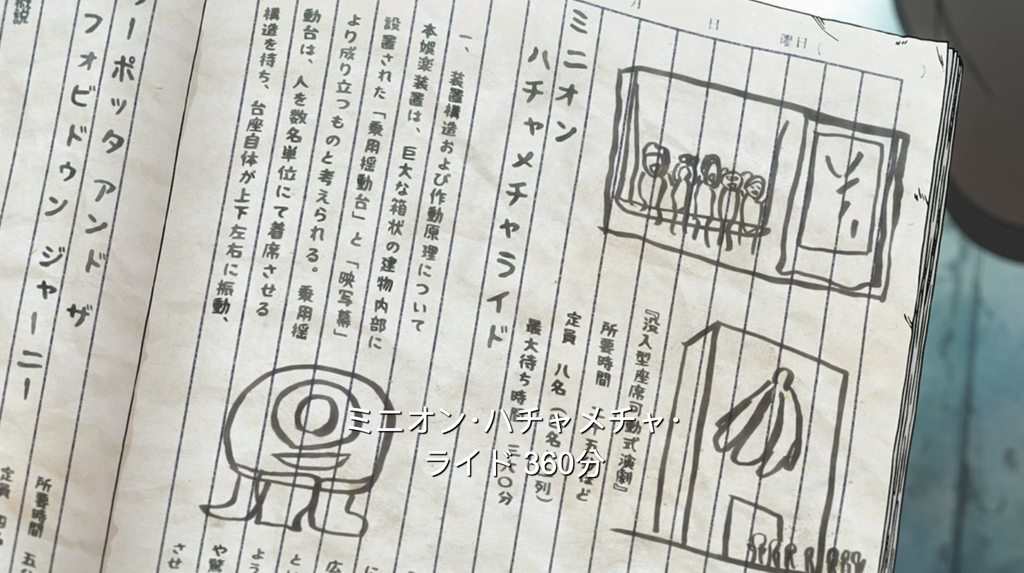 月　日　曜日（
ミニオン
ハチャメチャライド
『没入型座席可動式演劇』
所要時間　五分ほど
定員　八名
最大待ち時間　三六〇分
一、装置構造および作動原理について
本娯楽装置は、巨大な箱状の建物内部に
設置された「乗用揺動台」と「映写幕」
より成り立つものと考えられる。乗用揺
動台は、人を数名単位にて着席させる
構造を持ち、台座自体が上下左右に振動、
させ
や驚
ーポッタアンドザ
フォビドゥンジャーニー
所要時間　五
定員　四
概説
ミニオン・ハチャメチャ・
ライド 360分